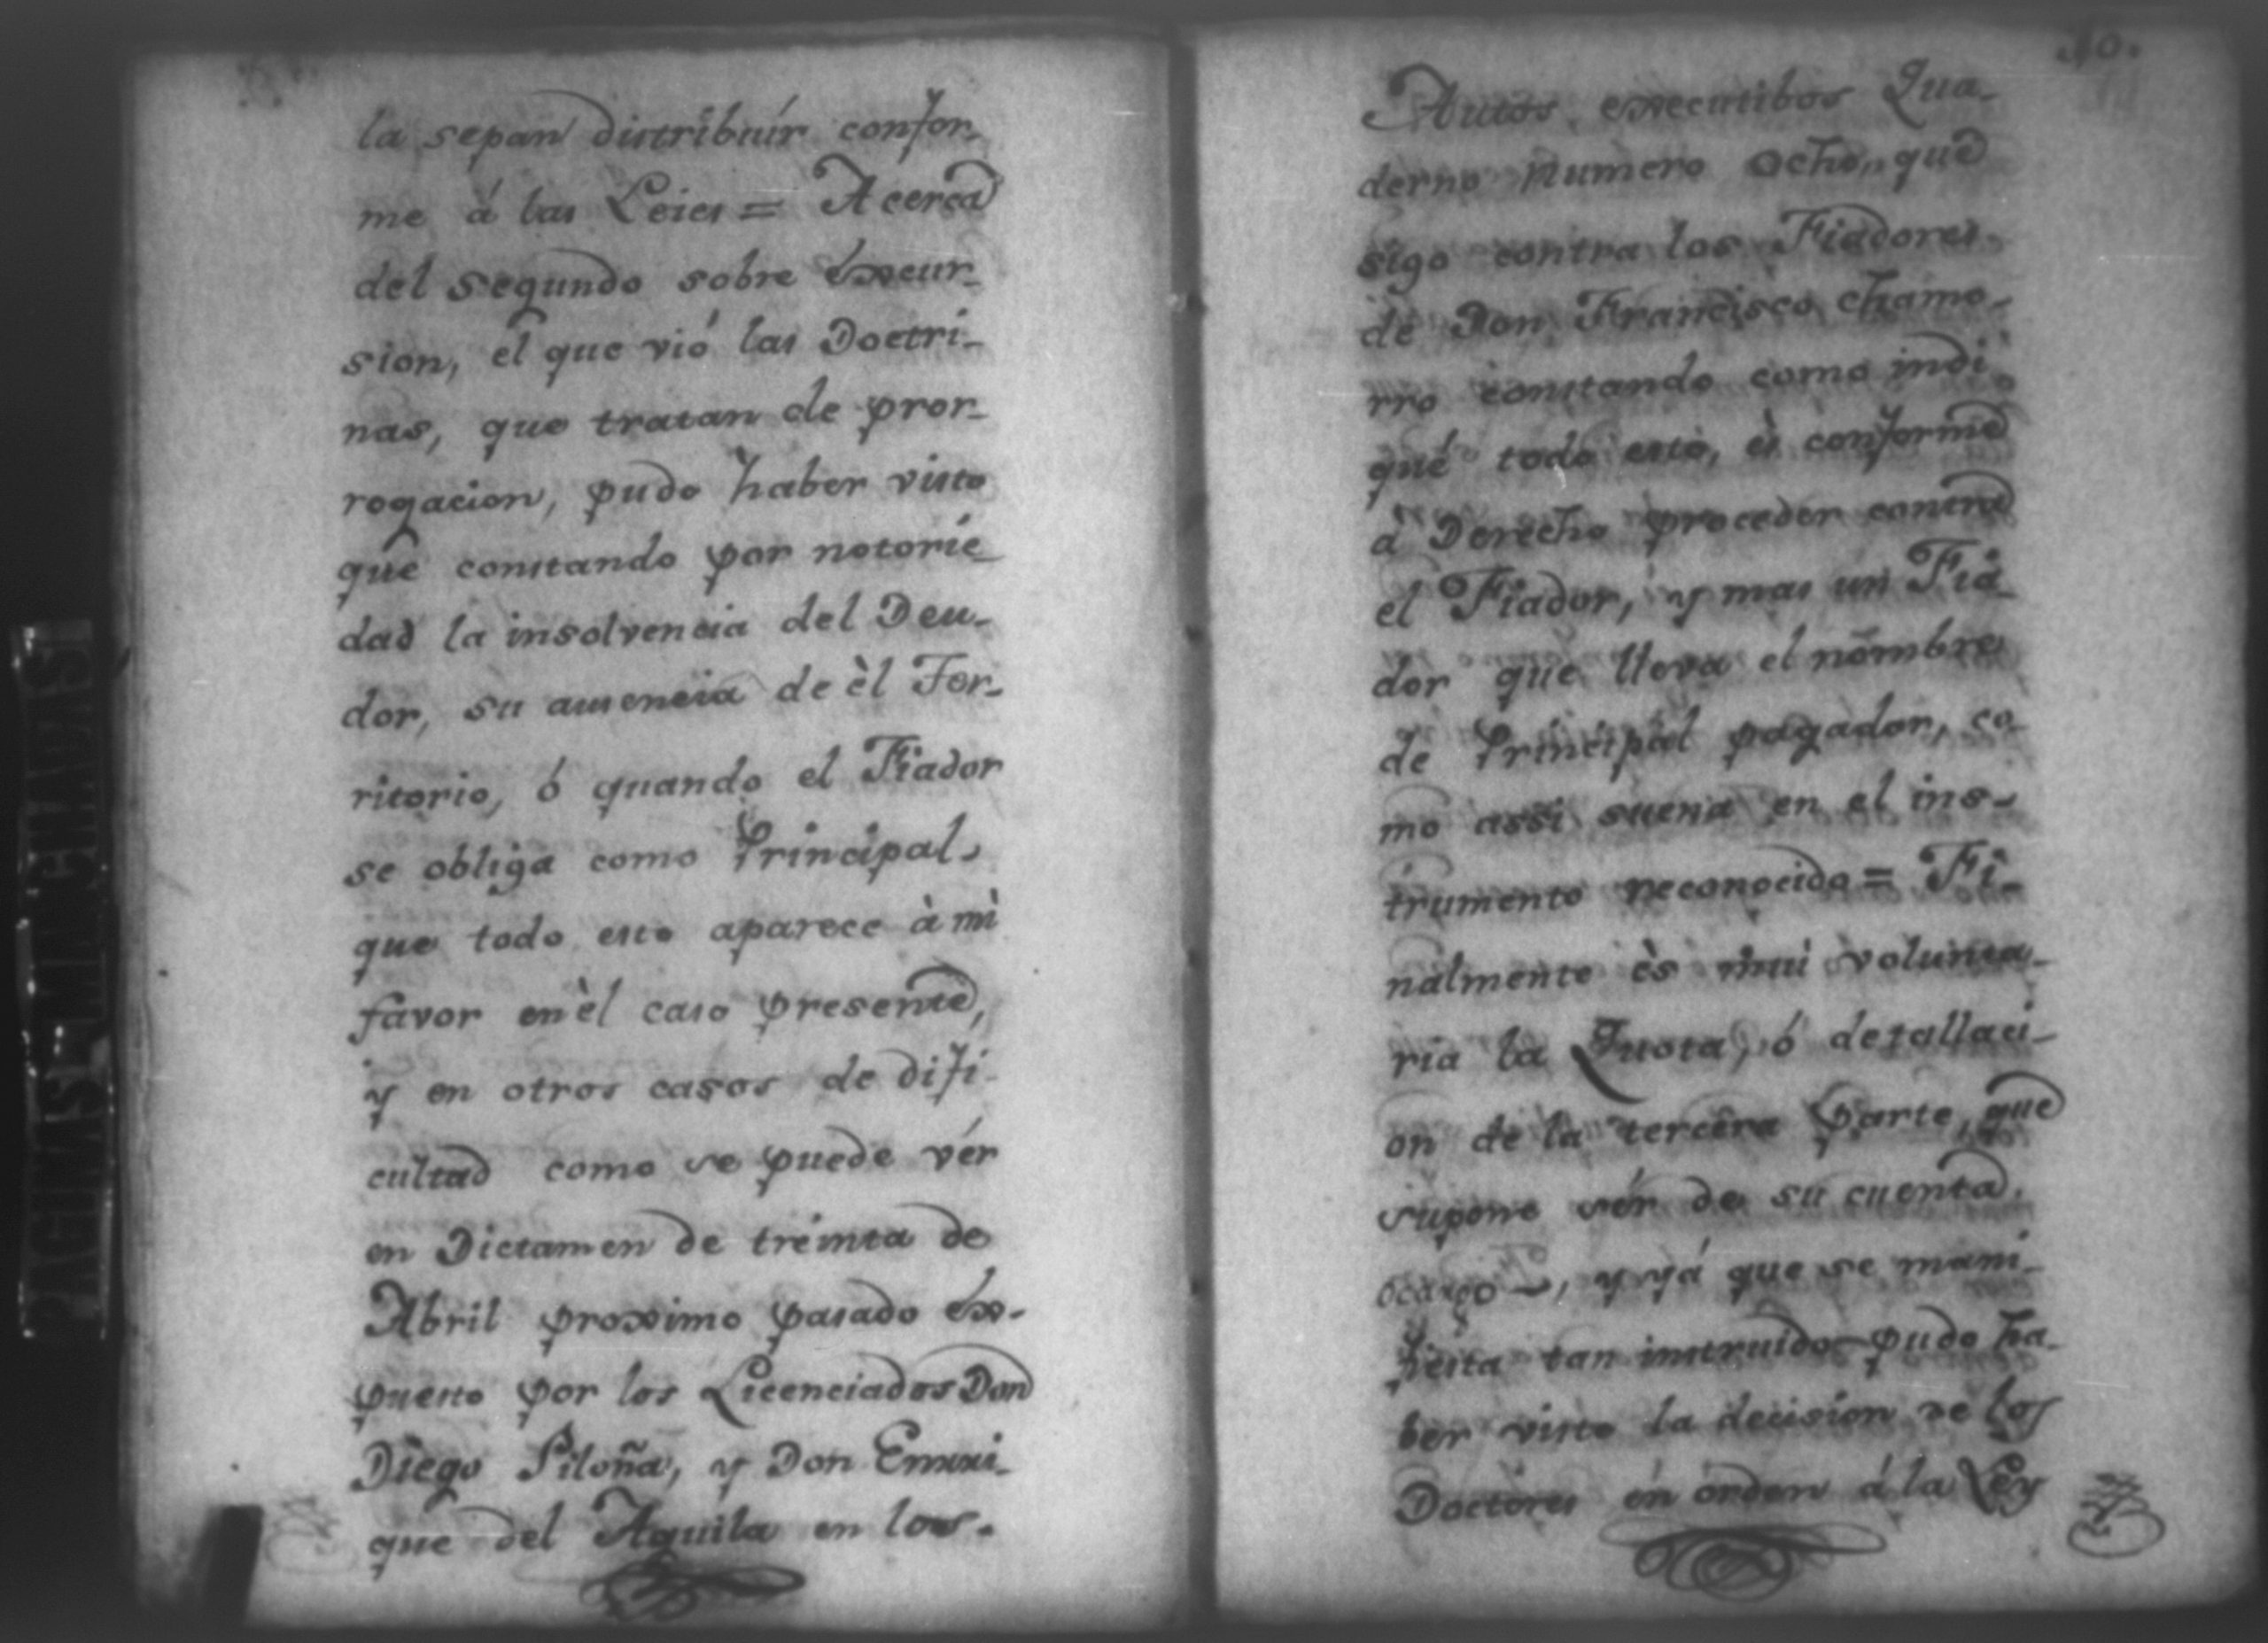 la sepan distribuír confor-
me á las Leies = Acerca
del segundo sobre éxcur-
sion, el que vió las Doctri-
nas, que tratan de pror-
rogacion, pudo haber visto
que constando por notorie-
dad la insolvencia del Deu-
dor, su ausencia de èl Ter-
ritorio, ó quando el Fiador
se obliga como Principal,
que todo esto aparece à mi
favor en èl caso presente,
y en otros casos de difi-
cultad como se puede vér
en Dictamen de treinta de
Abril proximo pasado éx-
puesto por los Licenciados Don
Diego Piloña, y Don Enrri-
que del Aguila en los
40.
Autos executibos Qua-
derno numero ocho, que
sigo contra los Fiadores
de Don Francisco chamo-
rro constando como indi
qué todo esto, ès conforme
à Derecho proceder contra
el Fiador, y mas un Fia-
dor que lleva el nombre
de Principal pagador, co-
mo assi suena en el ins-
trumento reconocido = Fi-
nalmente ès mui volunta-
ria la Quota, ó detallaci-
on de la tercera parte, que
supone sér de su cuenta
y yá que se mani-
fiesta tan instruido pudo ha-
ber visto la decision de los
Doctores én òrden á la Ley
PAGINAS MUTILADAS